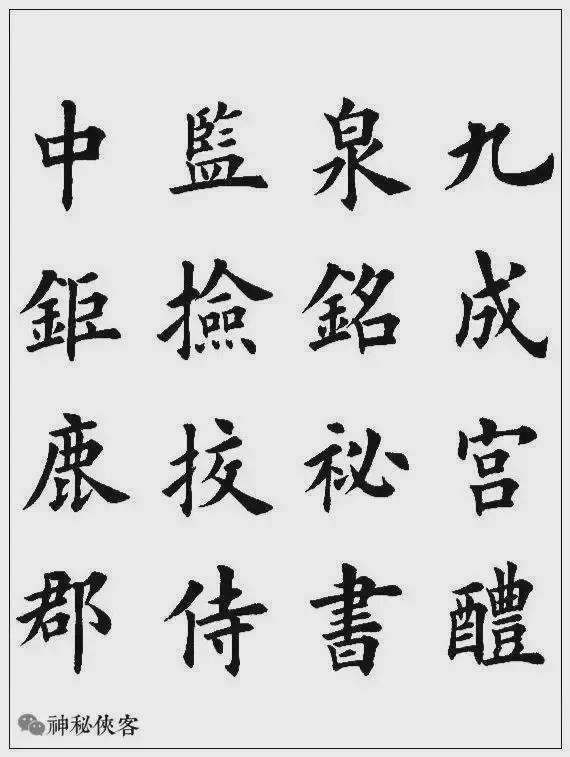 九成宮醴
泉銘祕書
監撿挍侍
中鉅鹿郡
神秘俠客